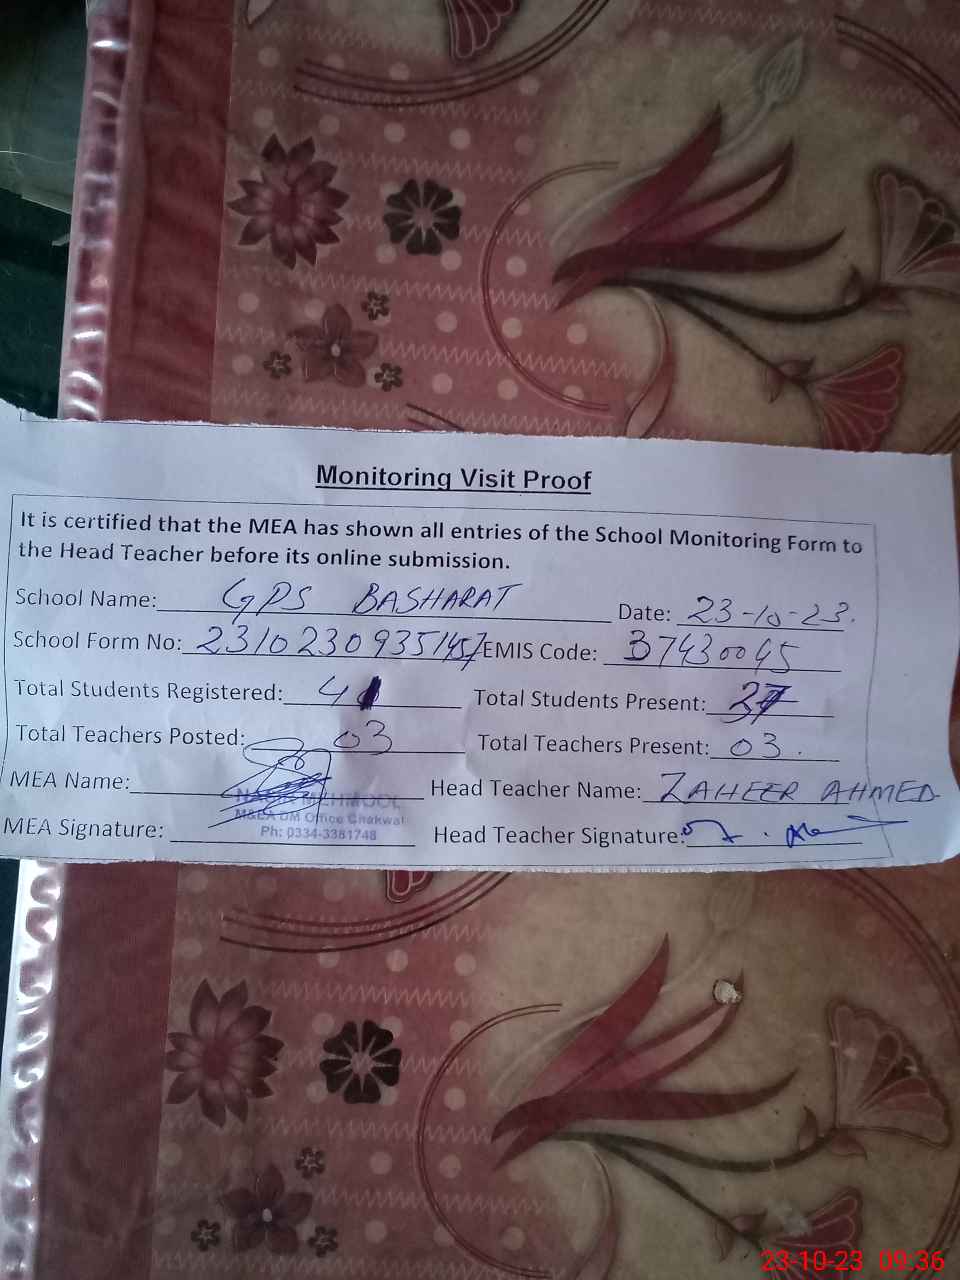 Monitoring Visit Proof
It is certified that the MEA has shown all entries of the School Monitoring Form to
the Head Teacher before its online submission.
School Name: GPS BASHARAT Date: 23-10-23.
School Form No: 23102309351457 EMIS Code: 37430045
Total Students Registered: Total Students Present:
Total Teachers Posted: 03 Total Teachers Present: 03.
MEA Name: Head Teacher Name: ZAHEER AHMED
MEHMOOD
M&EA DM Office Chakwal
Ph: 0334-3381748
MEA Signature: Head Teacher Signature:
23-10-23 09:36